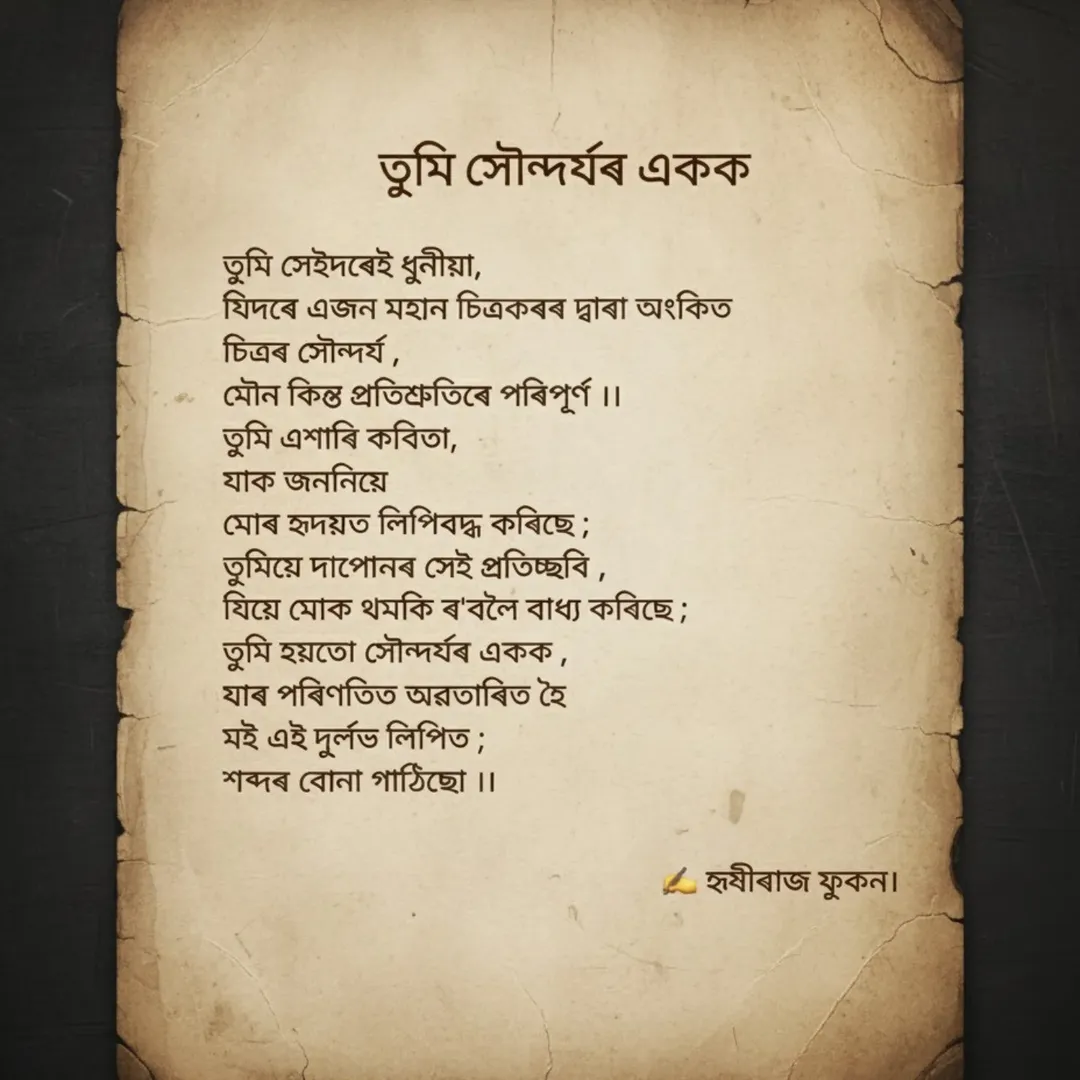 তুমি সৌন্দৰ্যৰ একক
তুমি সেইদৰেই ধুনীয়া,
যিদৰে এজন মহান চিত্ৰকৰৰ দ্বাৰা অংকিত
চিত্ৰৰ সৌন্দৰ্য ,
মৌন কিন্ত প্ৰতিশ্ৰুতিৰে পৰিপূৰ্ণ ।।
তুমি এশাৰি কবিতা,
যাক জননিয়ে
মোৰ হৃদয়ত লিপিবদ্ধ কৰিছে ;
তুমিয়ে দাপোনৰ সেই প্ৰতিচ্ছবি ,
যিয়ে মোক থমকি ৰ'বলৈ বাধ্য কৰিছে ;
তুমি হয়তো সৌন্দৰ্যৰ একক ,
যাৰ পৰিণতিত অৱতাৰিত হৈ
মই এই দুৰ্লভ লিপিত ;
শব্দৰ বোনা গাঠিছো ।।
✍️ হৃষীৰাজ ফুকন।